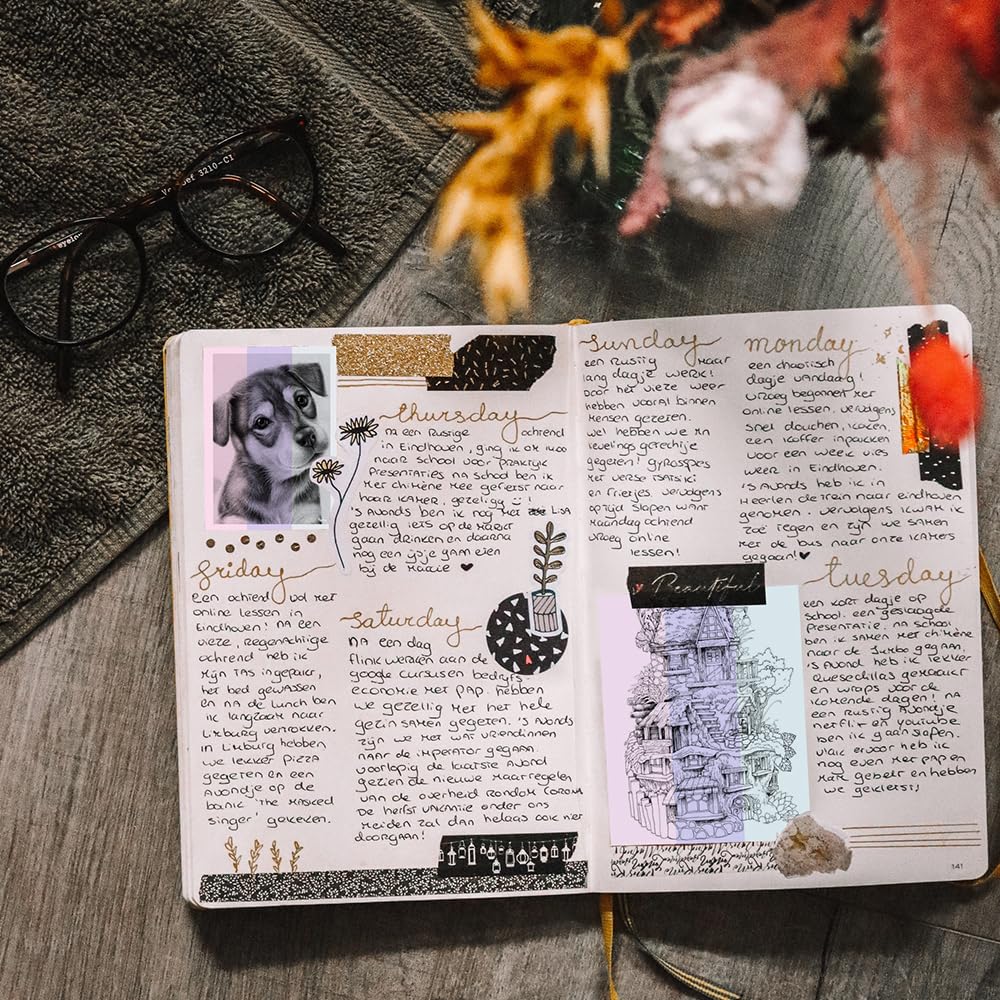 3210-C1
thursday
na een rustige ochtend
in Eindhoven, ging ik om 14:00
naar school voor praktijk
presentaties na school ben ik
met chimène mee gefietst naar
haar kamer. gezellig :)!
's avonds ben ik nog met Lisa
gezellig iets op de markt
gaan drinken en daarna
nog een ijsje gam eten
bij de maaie ♥
friday
een ochtend vol met
online lessen in
Eindhoven! na een
vieze, regenachtige
ochtend heb ik
mijn tas ingepakt,
het bed gewassen
en na de lunch ben
ik langzaam naar
Limburg vertrokken.
in Limburg hebben
we lekker pizza
gegeten en een
avondje op de
bank 'the masked
singer' gekeken.
saturday
na een dag
flink werken aan de
google cursus en bedrijfs
economie met pap. hebben
we gezellig met het hele
gezin samen gegeten. 's avonds
zijn we met wat vriendinnen
naar de imperator gegaan
voorlopig de laatste avond
gezien de nieuwe maatregelen
van de overheid rondom corona
de herfst vakantie onder ons
meiden zal dan helaas ook niet
doorgaan!
sunday
een rustig maar
lang dagje werk!
door het vieze weer
hebben vooral binnen
mensen gezeten.
wel hebben we mn
lievelings gerechtje
gegeten! gyrosspies
met verse tsatsiki
en frietjes. vervolgens
optijd slapen want
maandag ochtend
vroeg online
lessen!
monday
een chaotisch
dagje vandaag!
vroeg begonnen met
online lessen. vervolgens
snel douchen, koken,
een koffer inpakken
voor een week vies
weer in Eindhoven.
's avonds heb ik in
Heerlen de trein naar eindhoven
genomen. vervolgens kwam ik
zoë tegen en zijn we samen
met de bus naar onze kamers
gegaan!♥
Beautiful
tuesday
een kort dagje op
school. een geslaagde
presentatie. na school
ben ik samen met chimène
naar de Jumbo gegaan,
's avond heb ik lekker
quesedillas gemaakt
en wraps voor de
komende dagen! na
een rustig avondje
netflix en youtube
ben ik gaan slapen.
vlak ervoor heb ik
nog even met pap en
mam gebelt en hebben
we gekletst!
141